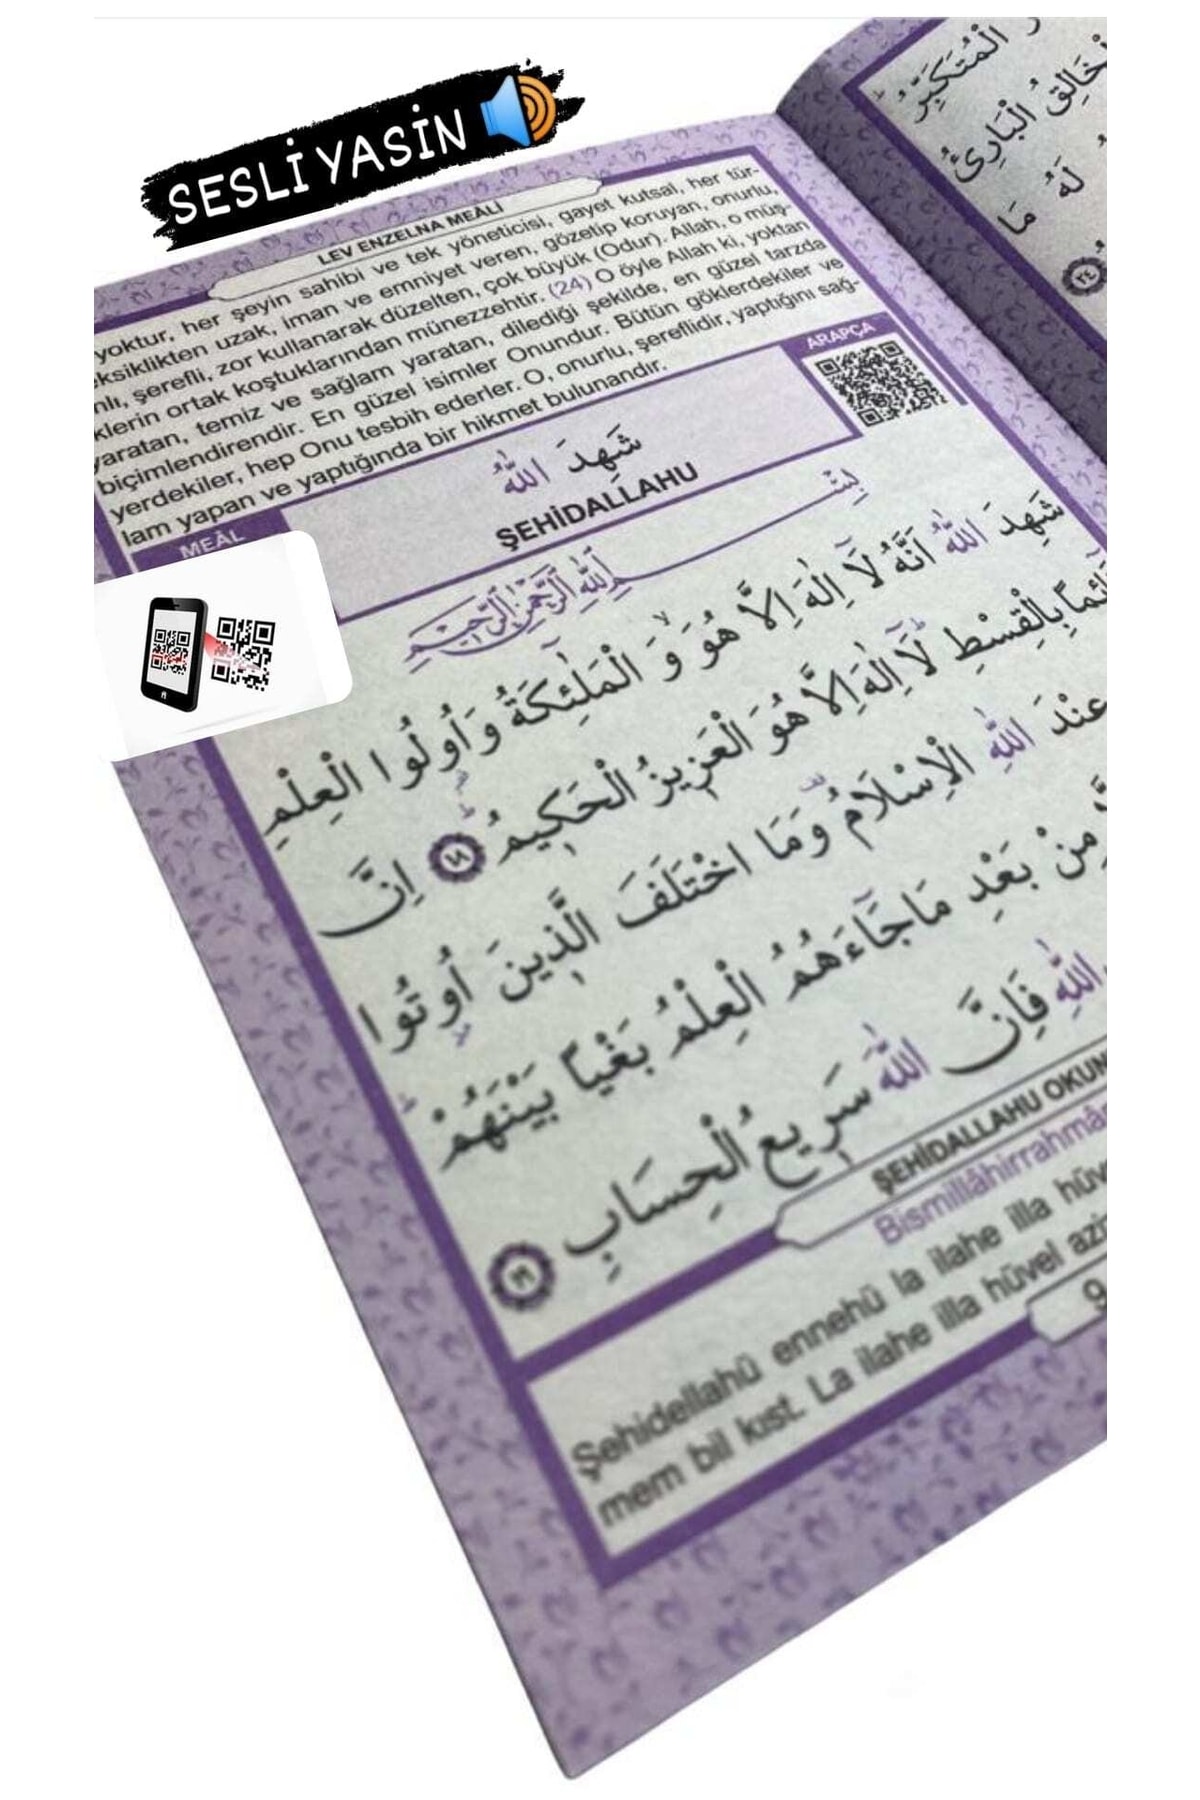 SESLİ YASİN
LEV ENZELNA MEÂLİ
yoktur, her şeyin sahibi ve tek yöneticisi, gayet kutsal, her tür-
eksiklikten uzak, iman ve emniyet veren, gözetip koruyan, onurlu,
nlı, şerefli, zor kullanarak düzelten, çok büyük (Odur). Allah, o müş-
klerin ortak koştuklarından münezzehtir. (24) O öyle Allah ki, yoktan
yaratan, temiz ve sağlam yaratan, dilediği şekilde, en güzel tarzda
biçimlendirendir. En güzel isimler Onundur. Bütün göklerdekiler ve
yerdekiler, hep Onu tesbih ederler. O, onurlu, şereflidir, yaptığını sağ-
lam yapan ve yaptığında bir hikmet bulunandır.
MEÂL
شَهِدَ اللّٰهُ
ŞEHİDALLAHU
ARAPÇA
بِسْمِ اللّٰهِ الرَّحْمٰنِ الرَّحِيمِ
شَهِدَ اللّٰهُ اَنَّهُ لَٓا اِلٰهَ اِلَّا هُوَ وَ الْمَلٰٓئِكَةُ وَاُولُوا الْعِلْمِ
بِالْقِسْطِ لَٓا اِلٰهَ اِلَّا هُوَ الْعَزِيزُ الْحَكِيمُ ١٨ اِنَّ
عِنْدَ اللّٰهِ الْاِسْلَامُ وَمَا اخْتَلَفَ الَّذِينَ اُوتُوا
مِنْ بَعْدِ مَا جَٓاءَهُمُ الْعِلْمُ بَغْيًا بَيْنَهُمْ
اللّٰهِ فَاِنَّ اللّٰهَ سَرِيعُ الْحِسَابِ ١٩
ŞEHİDALLAHU OKUN
Bismillâhirrahmân
Şehidellahü ennehü la ilahe illa hüv
mem bil kıst. La ilahe illa hüvel azi
9
الْمُتَكَبِّرُ
الْخَالِقُ الْبَارِئُ
لَهُ مَا
٢٤